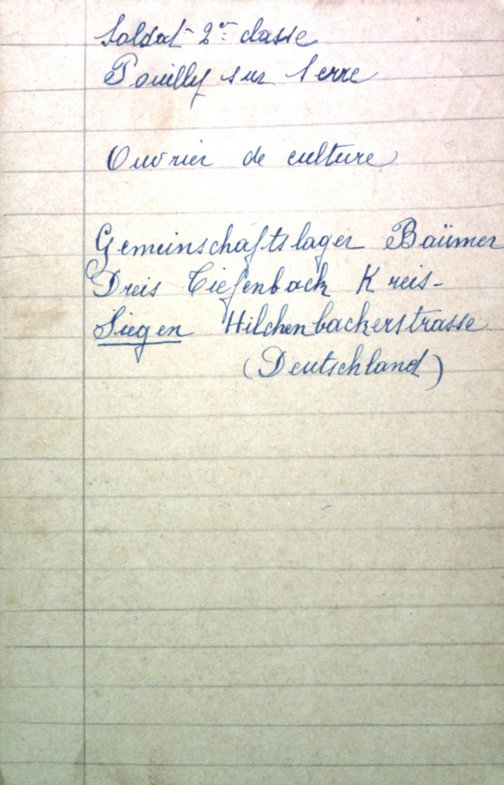 Soldat 2er classe
Pouilly sur Serre
Ouvrier de culture
Gemeinschaftslager Baümer
Dreis Tiefenback Kreis-
Siegen Hilchenbackerstrasse
(Deutschland)